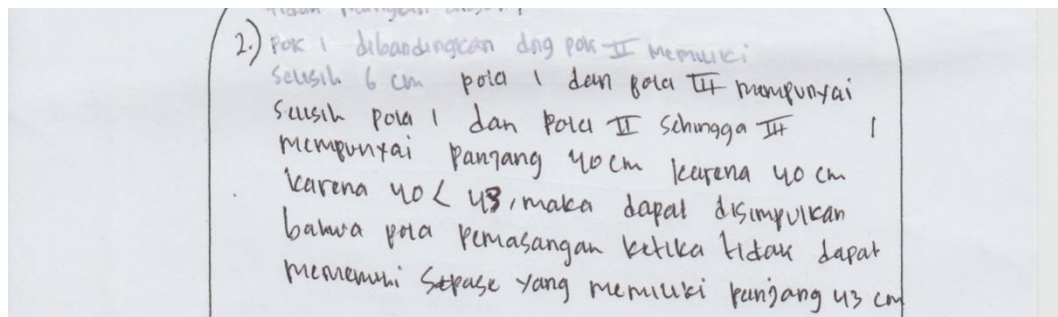 2.) Pok 1 dibandingkan dng pok II memiliki
Selisih 6 cm pola 1 dan pola III mempunyai
Selisih pola 1 dan Pola II Sehingga III 1
mempunyai panjang 40 cm karena 40 cm
karena 40 < 43, maka dapat disimpulkan
bahwa pola pemasangan ketika tidak dapat
memenuhi Sepase yang memiliki panjang 43 cm